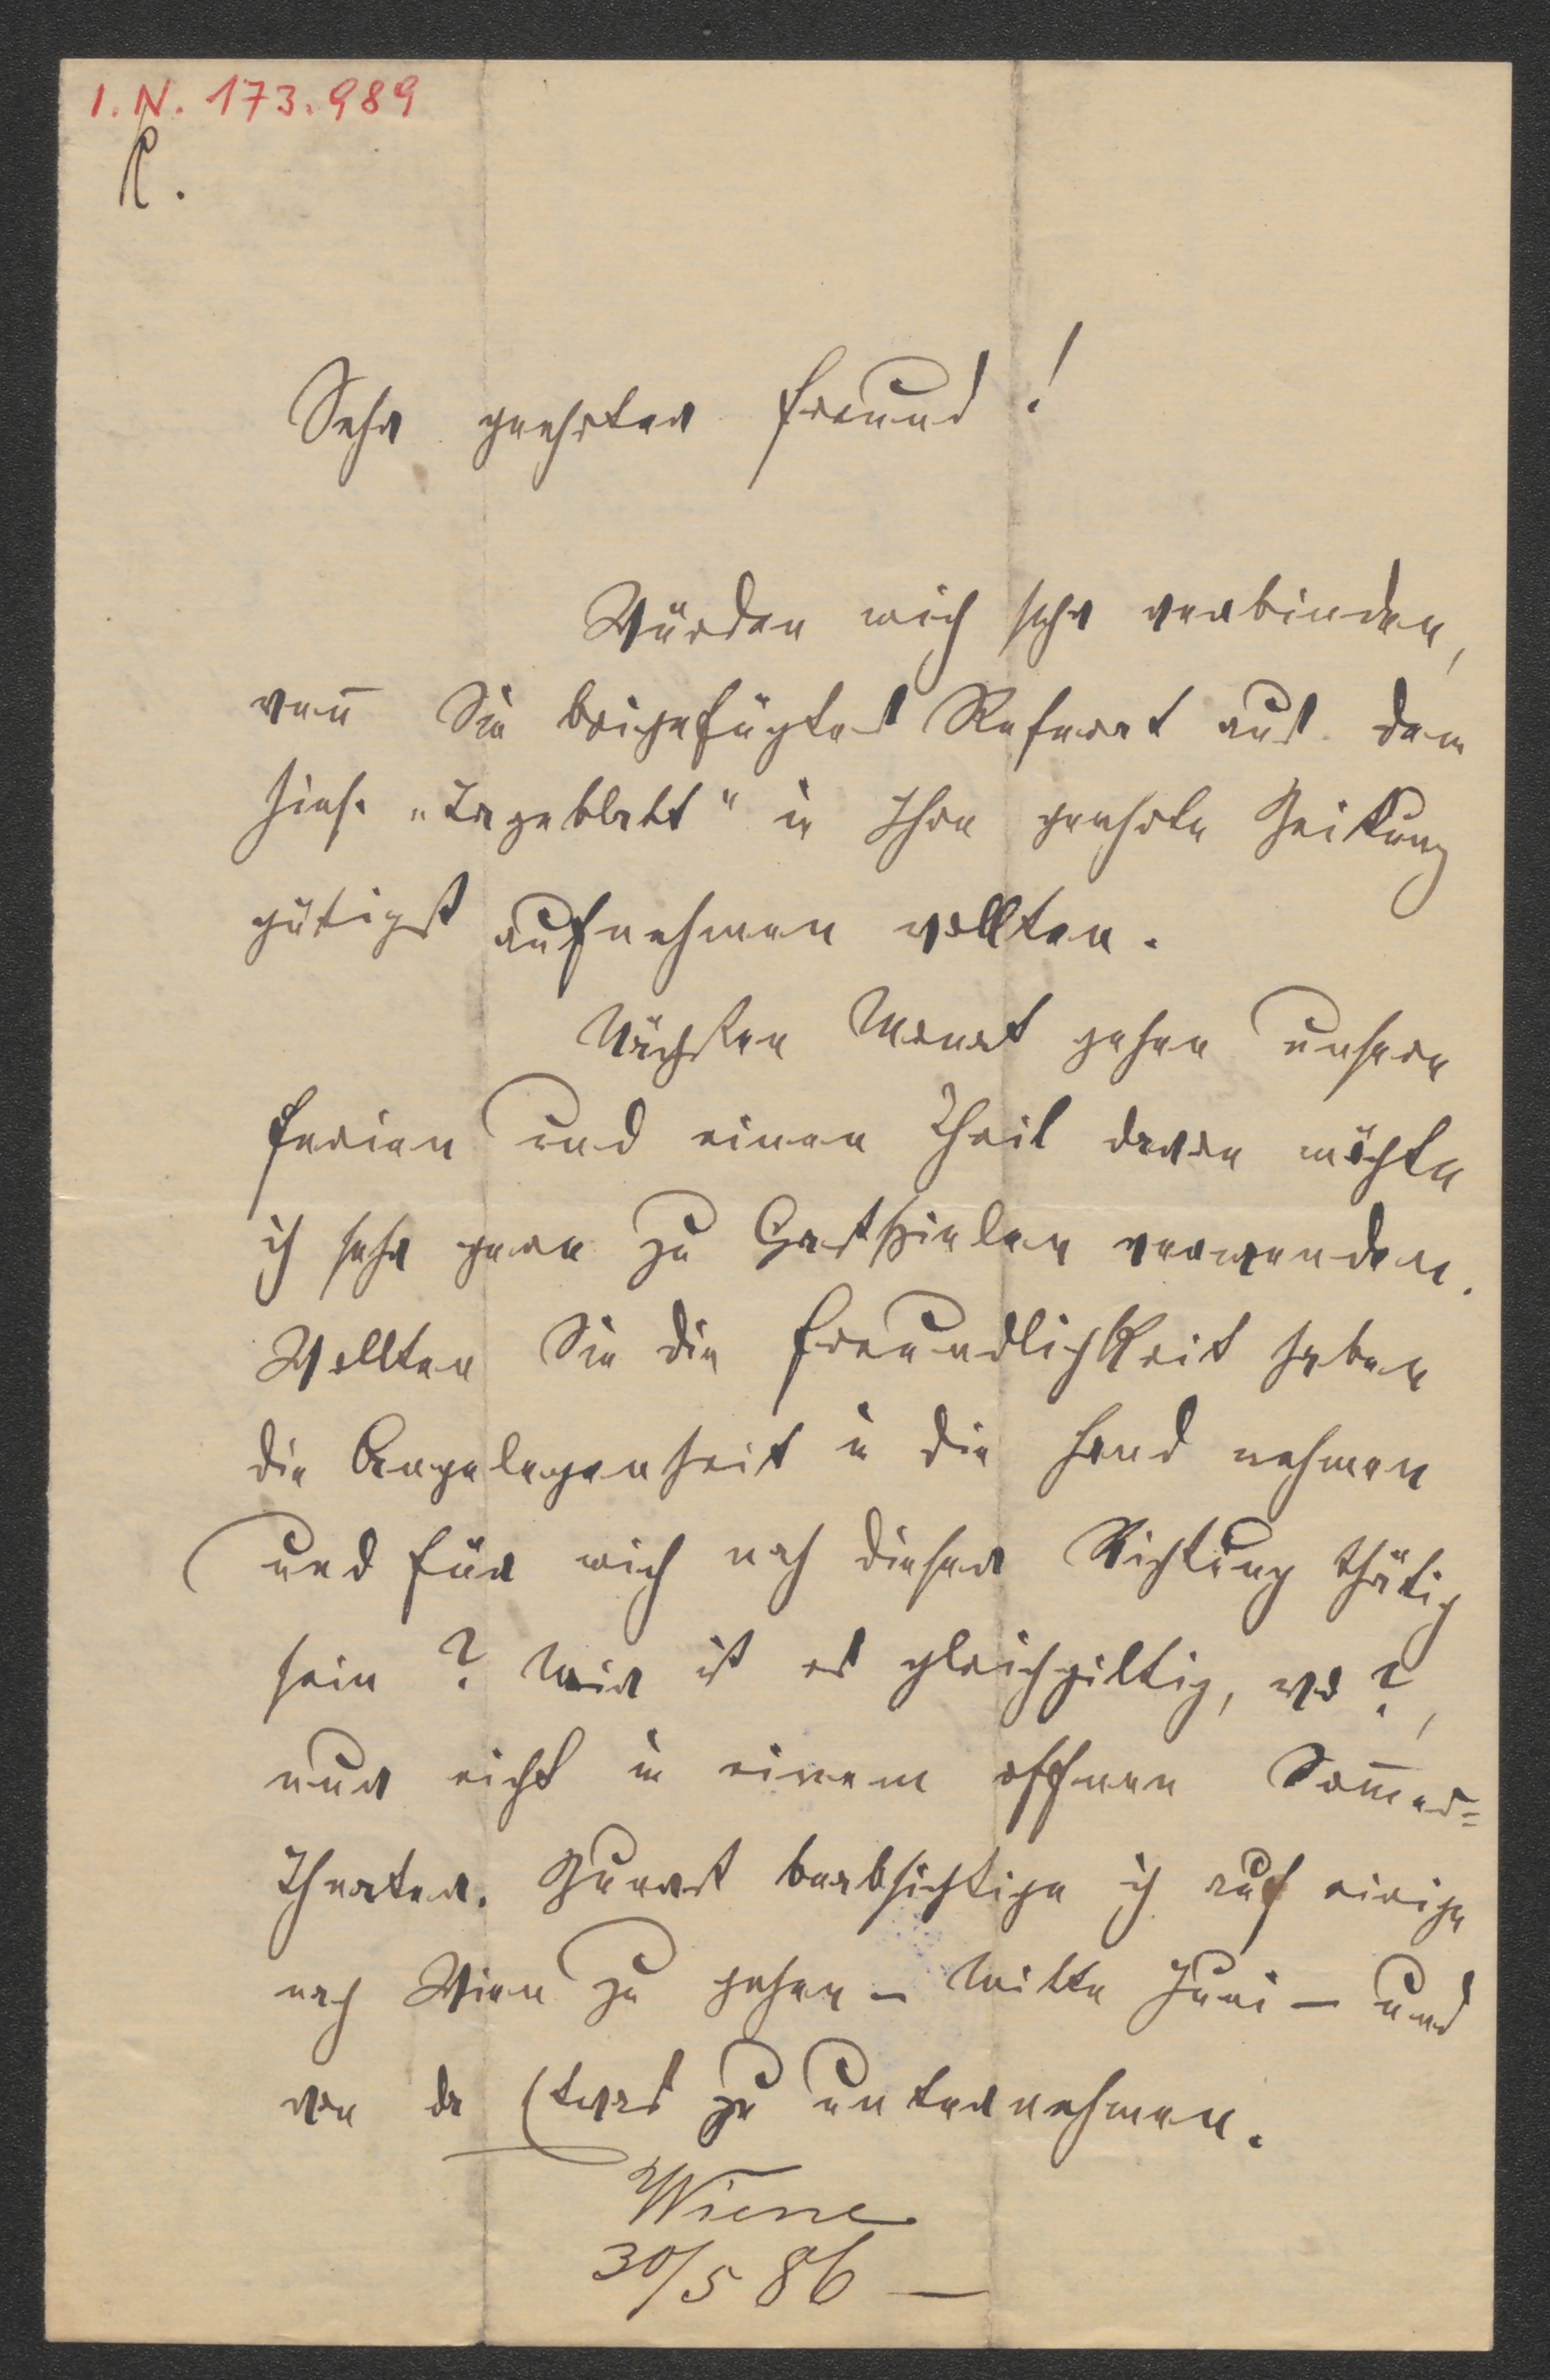 I. N. 173.989
R.
Sehr geehrter Freund!
Würden mich sehr verbinden,
wen̄ Sie beigefügtes Referat aus dem
hies. „Tageblatt" in Ihre geehrte Zeitung
gütigst aufnehmen wollten.
Nächsten Monat gehen unsere
Ferien und einen Theil davon möchte
ich sehr gern zu Gastspielen verwenden.
Wollten Sie die Freundlichkeit haben
die Angelegenheit in die Hand nehmen
und für mich nach dieser Richtung thätig
sein? Mir ist es gleichgiltig, wo?,
nur nicht in einem offnen Som̄er=
Theater. Zuerst beabsichtige ich auf einige
nach Wien zu gehen – Mitte Juni – und
von da Etwas zu unternehmen.
Wiene
30/5 86 —